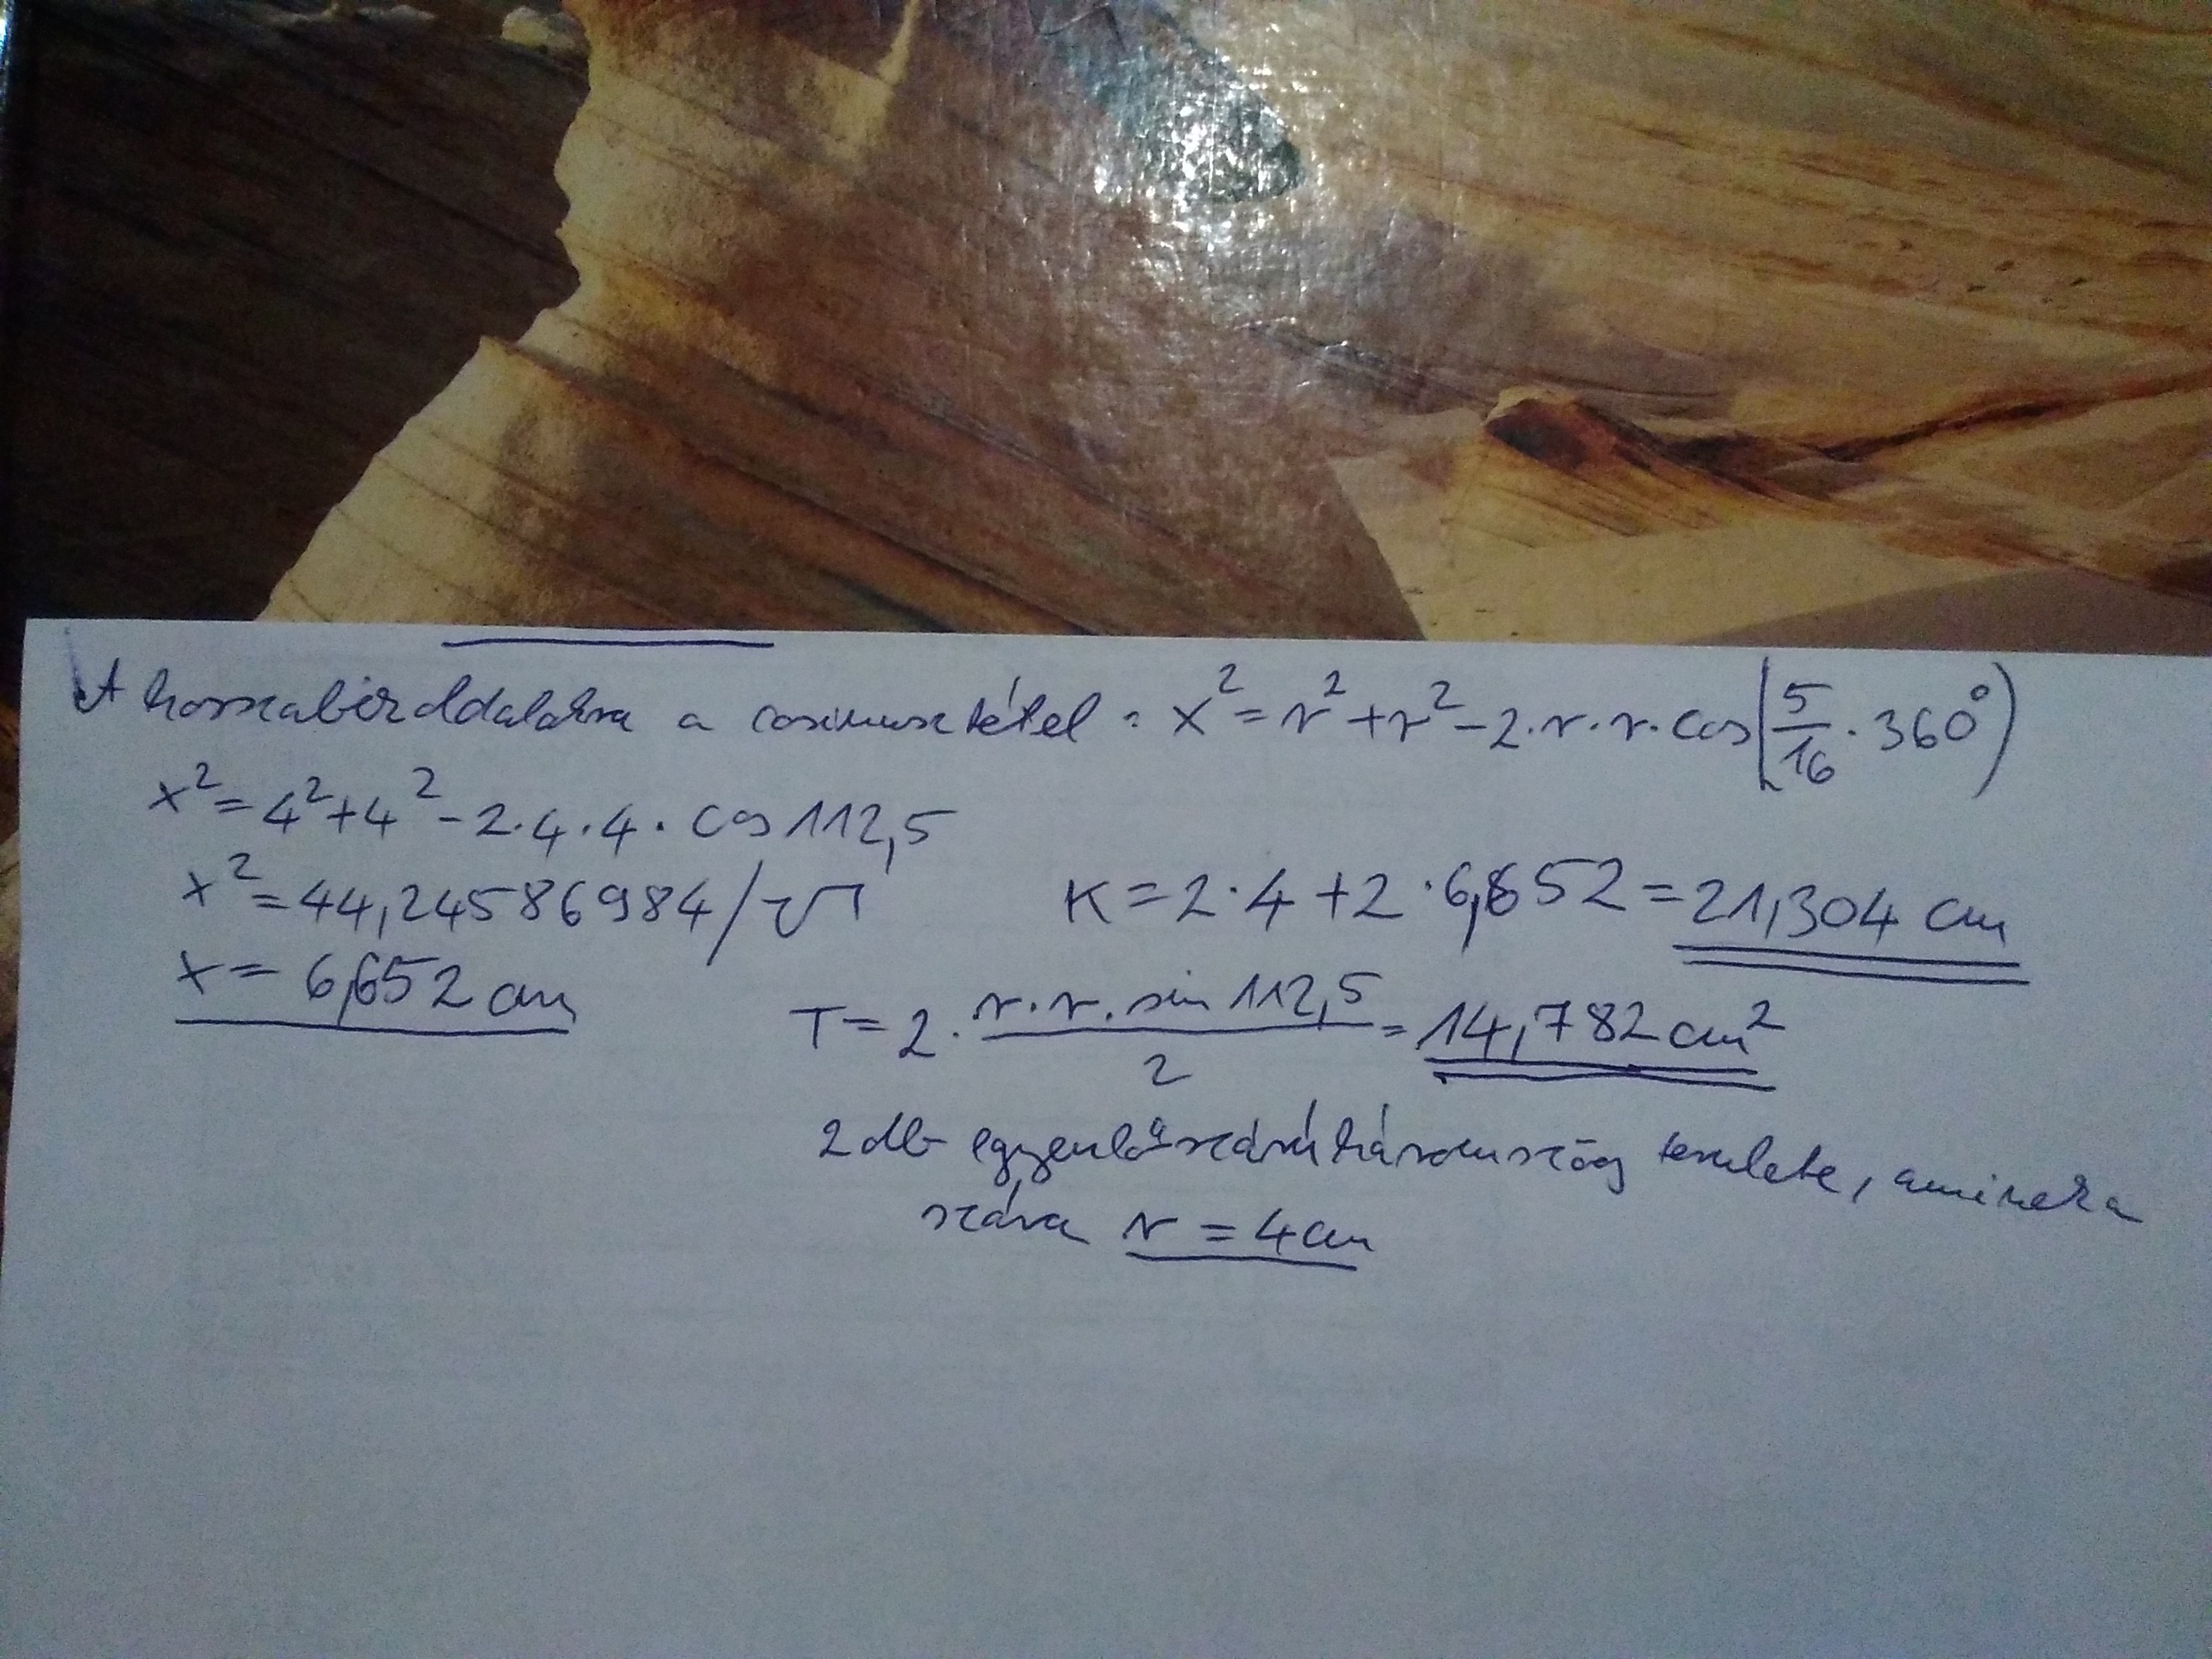 A hosszabbik oldalakra a cosinusz tétel: x² = r² + r² - 2·r·r·cos(5/16·360°)
x² = 4² + 4² - 2·4·4·cos 112,5
x² = 44,24586984 /√
x = 6,652 cm
K = 2·4 + 2·6,652 = 21,304 cm
T = 2·(r·r·sin 112,5)/2 = 14,782 cm²
2 db egyenlőszárú háromszög területe, aminek a
szára r = 4 cm